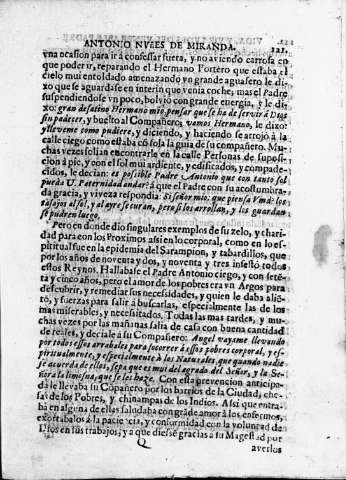 ANTONIO NVÑES DE MIRANDA. 121.
vna ocasion para ir à confessar fuera, y no aviendo carrosa en
que poder ir, reparando el Hermano Portero que estaba el
cielo mui entoldado amenazando vn grande aguasero le di-
xo que se aguardase en interin que venia coche, mas el Padre
suspendiendose vn poco, bolviò con grande energia, y le di-
xo: gran desatino Hermano mio, pensar que se ha de servir à Dios
sin padecer, y buelto al Compañero, vamos Hermano, le dixo:
y lleveme como pudiere, y diciendo, y haciendo se arrojò à la
calle ciego como estaba cõ sola la guia de su compañero. Mu-
chas veces solian encontrarlo en la calle Personas de suposi-
cion à pie, y con el sol mui ardiente, y edificados, y compade-
cidos, le decian: es posible Padre Antonio que con tanto sol
pueda V. Paternidad andar? à que el Padre con su acostumbra-
da gracia, y viveza respondia: Si señor mio: que piensa Vmd: los
tasajos al sol, y al ayre se curan, pero si los arrollan, y los guardan
se pudren luego.
Pero en donde dio singulares exemplos de su zelo, y chari-
dad para con los Proximos assi en lo corporal, como en lo es-
piritual fue en la epidemia del Sarampion, y tabardillos, que
por los años de noventa y dos, y noventa y tres infestò todos
estos Reynos. Hallabase el Padre Antonio ciego, y con seten-
ta y cinco años, pero el amor de los pobres era vn Argos para
descubrir, y remediar sus necesidades, y quien le daba alien-
tò, y fuerzas para salir à buscarlas, especialmente las de los
mas miserables, y necesitados. Todas las mas tardes, y mu-
chas veces por las mañanas salia de casa con buena cantidad
de reales, y decia à su Compañero: Angel vayame llevando
por todos essos arrabales para socorrer à essos pobres corporal, y es-
piritualmente, y especialmente à los Naturales, que quando nadie
se acuerda de ellos, sepa que es mui del agrado del Señor, y la Se-
ñora la limosna, que se les haze. Con esta prevencion anticipa-
da le llevaba su Cõpañero por los barrios de la Ciudad, che-
sas de los Pobres, y chinampas de los Indios. Assi que entra-
ba en alguna de ellas saludaba con grãde amor à los enfermos,
exortabalos à la paciencia, y conformidad con la voluntad de
Dios en sus trabajos, y à que diesse gracias à su Magestad por
Q averlos